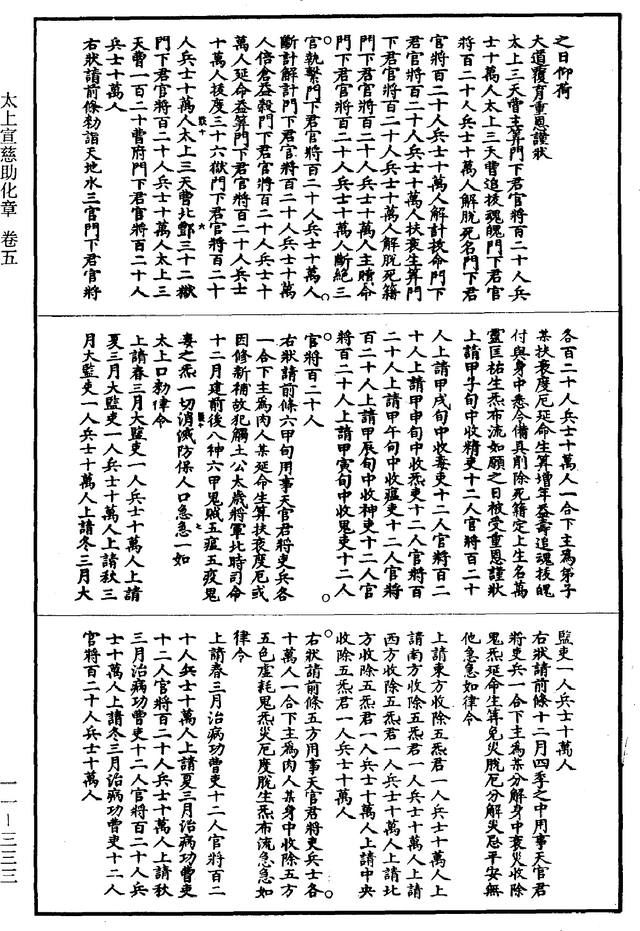 之日仰荷
大道覆育重恩謹狀
太上三天曹主算門下君官將百二十人兵
士十萬人太上三天曹追拔魂魄門下君官
將百二十人兵士十萬人解脫死名門下君
官將百二十人兵士十萬人解計拔命門下
君官將百二十人兵士十萬人扶衰生算門
下君官將百二十人兵士十萬人解脫死籍
門下君官將百二十人兵士十萬人主贖命
門下君官將百二十人兵士十萬人斷絕三
官執繫門下君官將百二十人兵士十萬人
斷計解計門下君官將百二十人兵士十萬
人倍倉益穀門下君官將百二十人兵士十
萬人延命益算門下君官將百二十人兵士
十萬人拔度三十六獄門下君官將百二十
人兵士十萬人太上三天曹北酆三十二獄
門下君官將百二十人兵士十萬人太上三
天曹一百二十曹府門下君官將百二十人
兵士十萬人
右狀請前條勑詣天地水三官門下君官將
各百二十人兵士十萬人一合下主為弟子
某扶衰度厄延命生算增年益壽追魂拔魄
付與身中悉令備具削除死籍定上生名萬
靈匡祐生炁布流如願之日被受重恩謹狀
上請甲子旬中收精吏十二人官將百二十
人上請甲戌旬中收毒吏十二人官將百二
十人上請甲申旬中收炁吏十二人官將百
二十人上請甲午旬中收瘟吏十二人官將
百二十人上請甲辰旬中收神吏十二人官
將百二十人上請甲寅旬中收鬼吏十二人
官將百二十人
右狀請前條六甲旬用事天官君將吏兵各
一合下主為肉人某延命生算扶衰度厄或
因修新補故犯觸土公太歲將軍比時司命
十二月建前後八神六甲鬼賊五瘟五疫鬼
毒之炁一切消滅防保人口急急一如
太上口勑律令
上請春三月大監吏一人兵士十萬人上請
夏三月大監吏一人兵士十萬人上請秋三
月大監吏一人兵士十萬人上請冬三月大
監吏一人兵士十萬人
右狀請前條十二月四季之中用事天官君
將吏兵一合下主為某分解身中衰災收除
鬼炁延命生算免災脫厄分解災咎平安無
他急急如律令
上請東方收除五炁君一人兵士十萬人上
請南方收除五炁君一人兵士十萬人上請
西方收除五炁君一人兵士十萬人上請北
方收除五炁君一人兵士十萬人上請中央
收除五炁君一人兵士十萬人
右狀請前條五方用事天官君將吏兵士各
十萬人一合下主為肉人某身中收除五方
五色虛耗鬼炁災厄度脫生炁布流急急如
律令
上請春三月治病功曹吏十二人官將百二
十人兵士十萬人上請夏三月治病功曹吏
十二人官將百二十人兵士十萬人上請秋
三月治病功曹吏十二人官將百二十人兵
士十萬人上請冬三月治病功曹吏十二人
官將百二十人兵士十萬人
太上宣慈助化章 卷五
一一－三三三